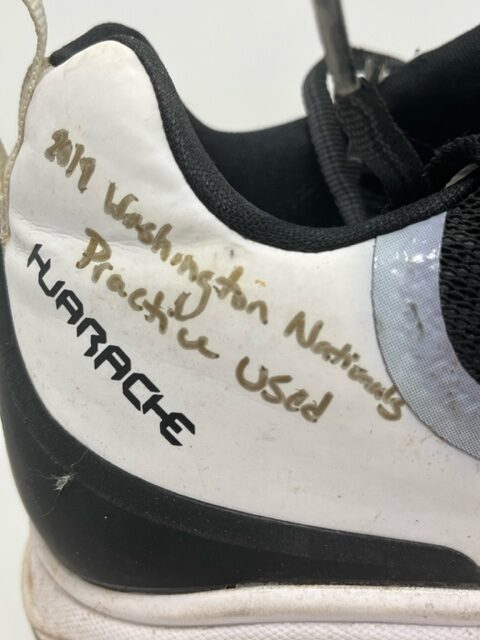 2019 Washington Nationals
Practice Used
HUARACHE